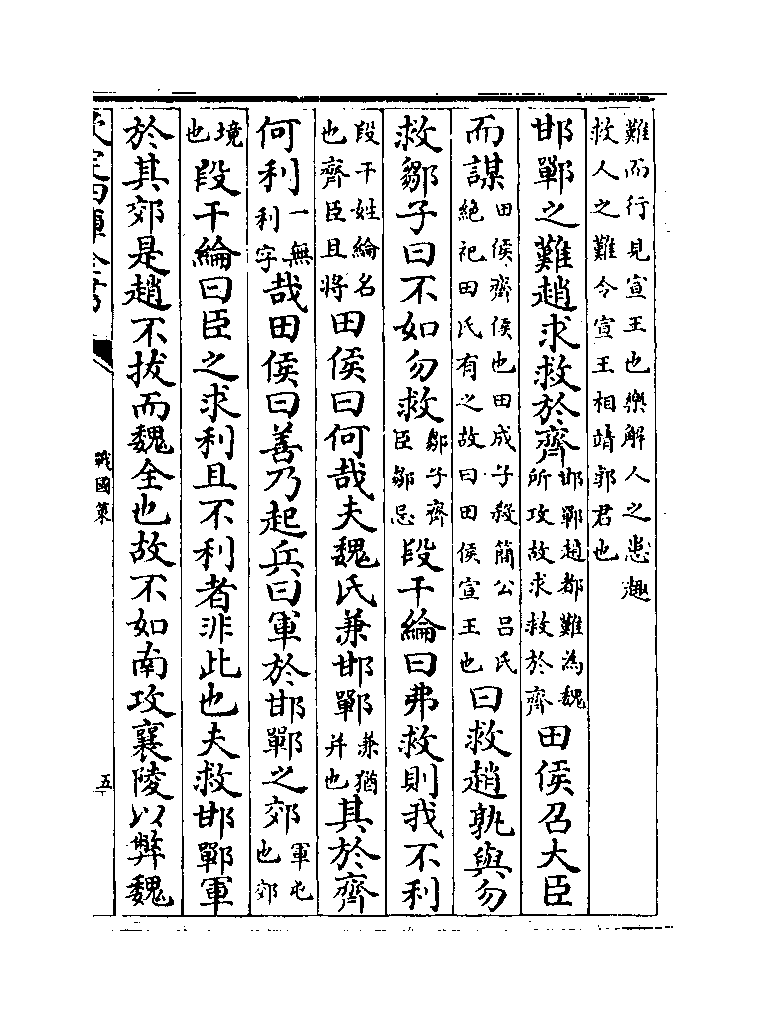 難而行見宣王也樂解人之患趣
救人之難令宣王相靖郭君也
邯鄲之難趙求救於齊邯鄲趙都難為魏所攻故求救於齊田侯召大臣
而謀田侯齊侯也田成子殺簡公呂氏絶祀田氏有之故曰田侯宣王也曰救趙孰與勿
救鄒子曰不如勿救鄒子齊臣鄒忌段干綸曰弗救則我不利
段干姓綸名也齊臣且將田侯曰何哉夫魏氏兼邯鄲兼猶并也其於齊
何利一無利字哉田侯曰善乃起兵曰軍於邯鄲之郊軍屯也郊
境也段干綸曰臣之求利且不利者非此也夫救邯鄲軍
於其郊是趙不拔而魏全也故不如南攻襄陵以弊魏
欽定四庫全書
戰國策
五